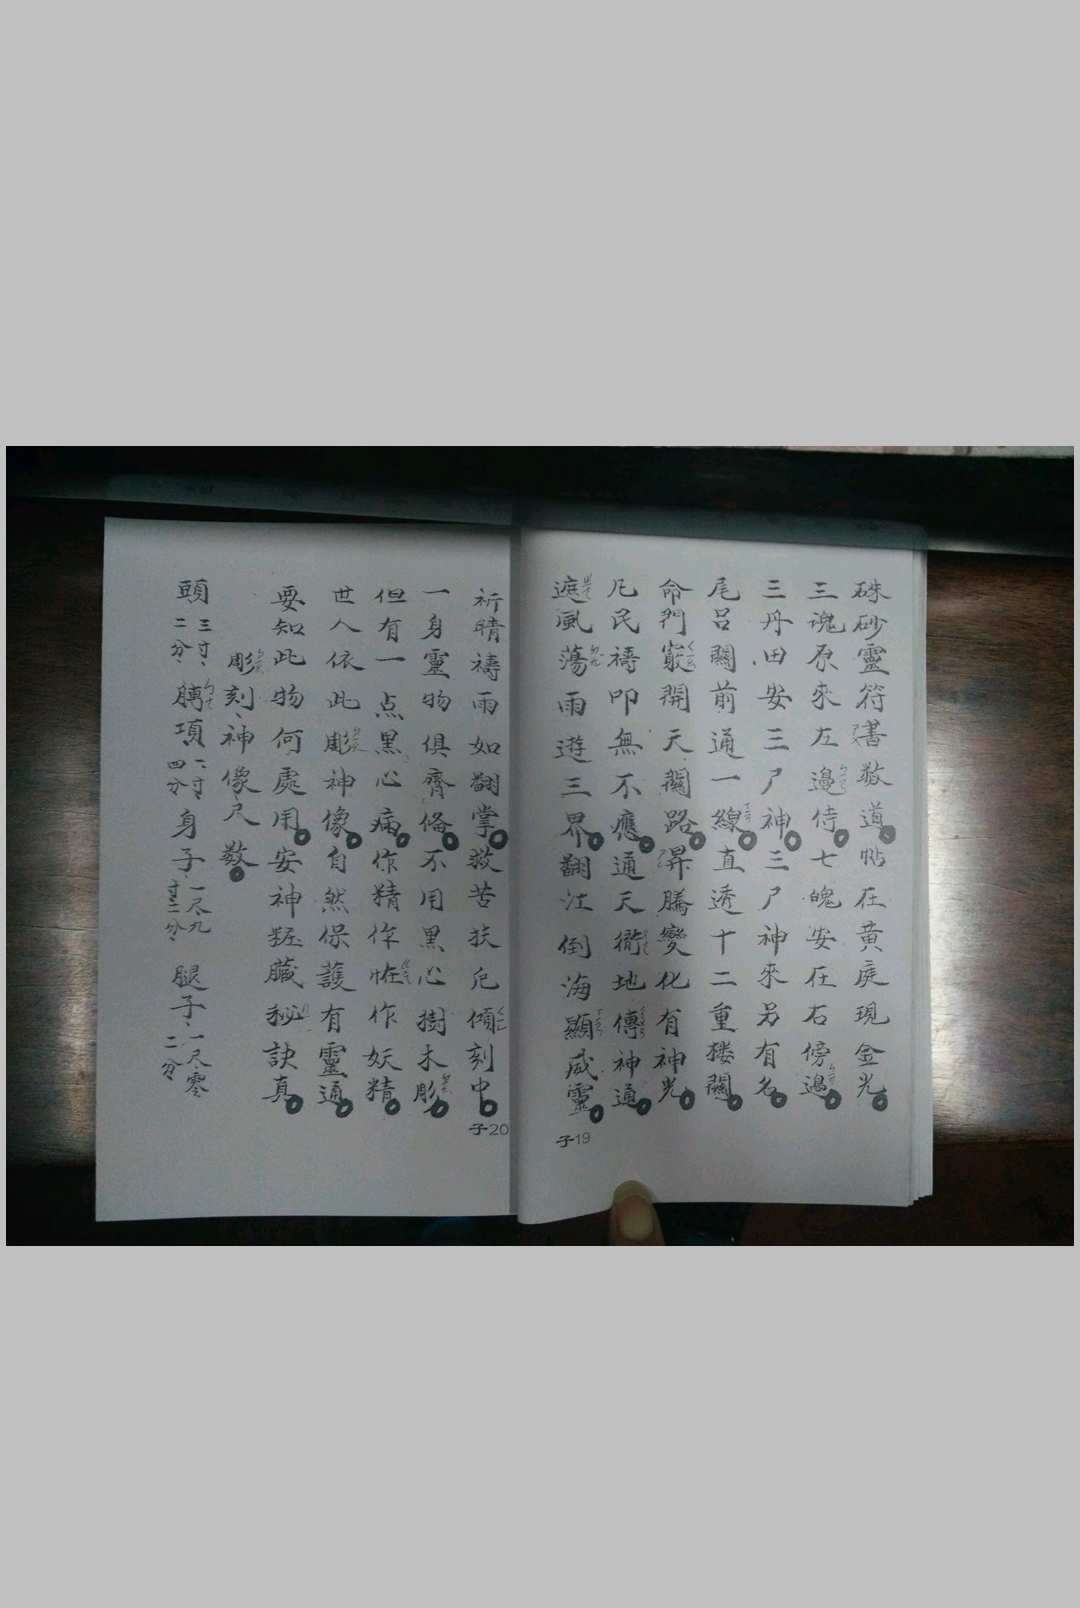 硃砂靈符書数道帖在黄庭現金光
三魂原來左邊侍七魄安在右傍邊
三丹田安三尸神三尸神來另有名
尾呂關前通一線直透十二重楼關
命門竅開天關路昇騰變化有神光
凡民禱叩無不應通天徹地傳神通
遮風蕩雨遊三界翻江倒海顯威靈
子19
祈晴禱雨如翻掌救苦扶危傾刻中
一身靈物俱齊俻不用黑心樹木彫
但有一点黑心痛作精作恠作妖精
世人依此彫神像自然保護有靈通
要知此物何處用安神粧臟秘訣真
彫刻神像尺数
頭三寸二分 膊項一寸四分 身子一尺九寸二分 腿子一尺零二分
子20